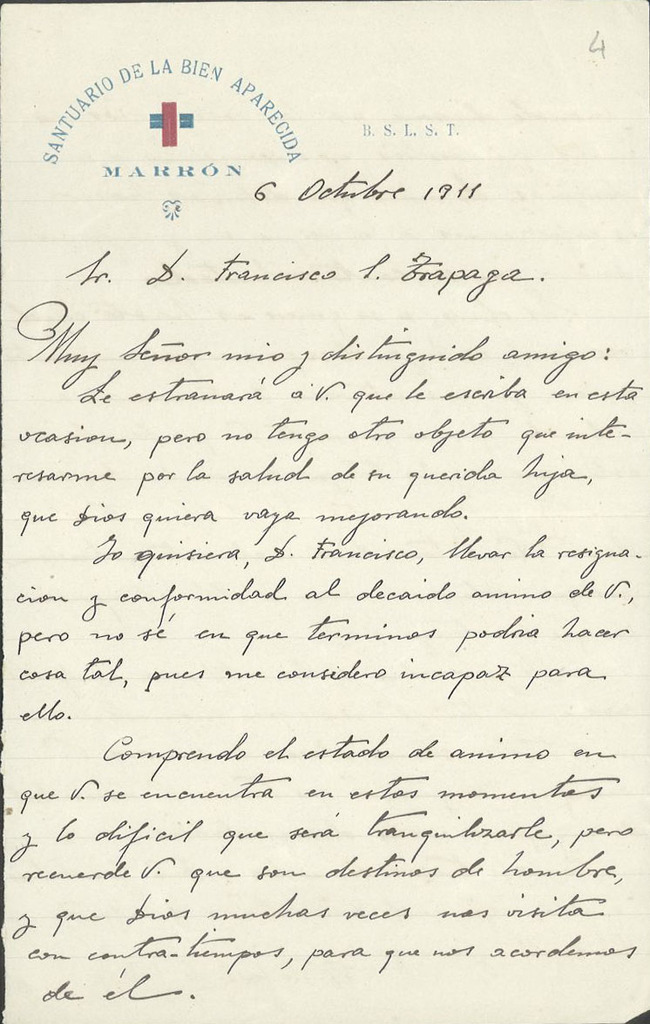 4
SANTUARIO DE LA BIEN APARECIDA
B. S. L. S. T.
MARRÓN
6 Octubre 1911
Sr. D. Francisco S. Trapaga.
Muy Señor mio y distinguido amigo:
Le estranará á V. que le escriba en esta
ocasion, pero no tengo otro objeto que inte-
resarme por la salud de su querida hija,
que Dios quiera vaya mejorando.
Yo quisiera, D. Francisco, llevar la resigna-
cion y conformidad al decaido animo de V.,
pero no sé en que terminos podria hacer
cosa tal, pues me considero incapaz para
ello.
Comprendo el estado de animo en
que V. se encuentra en estos momentos
y lo dificil que será tranquilizarle, pero
recuerde V. que son destinos de hombre,
y que Dios muchas veces nos visita
con contra-tiempos, para que nos acordemos
de él.